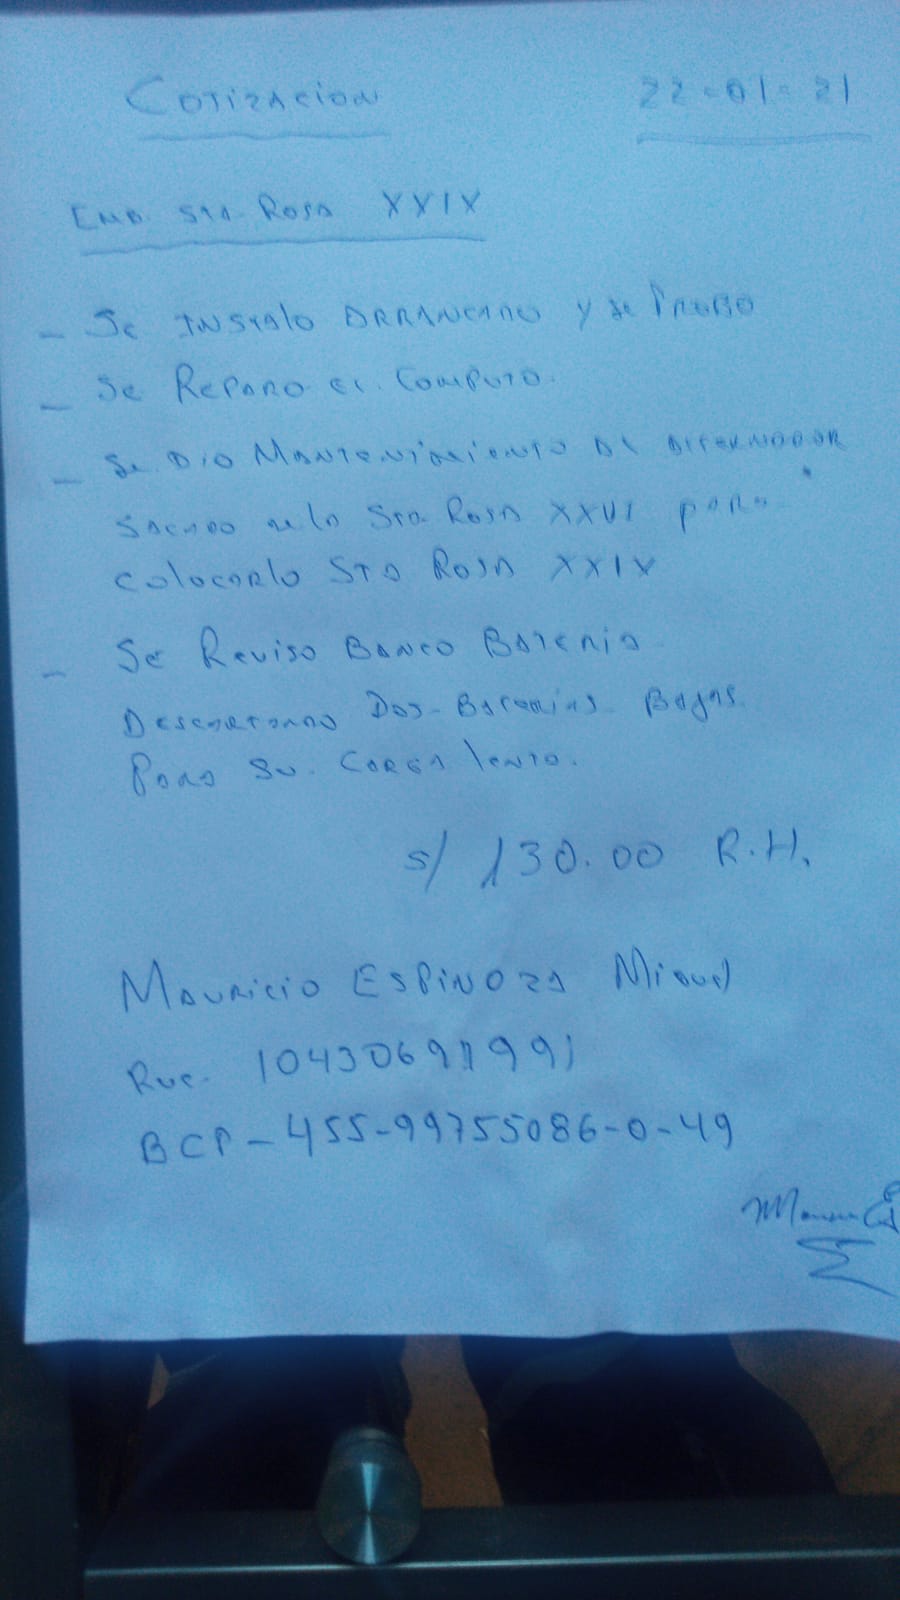 COTIZACION 22-01-21
EMB. STA. ROSA XXIX
- Se INSTALO ARRANCADO y se PROBO
- Se REPARO EL COMPUTO.
- Se DIO MANTENIMIENTO AL ALTERNADOR
SACADO de la STA. ROSA XXVI para
COLOCARLO STA ROSA XXIX
- Se REVISO BANCO BATERIA
DESCARTANDO DOS - BATERIAS BAJAS
PARA SU CARGA lENTA.
s/ 130.00 R.H.
MAURICIO ESPINOZA MIGUEL
RUC. 10430691991
BCP-455-99755086-0-49